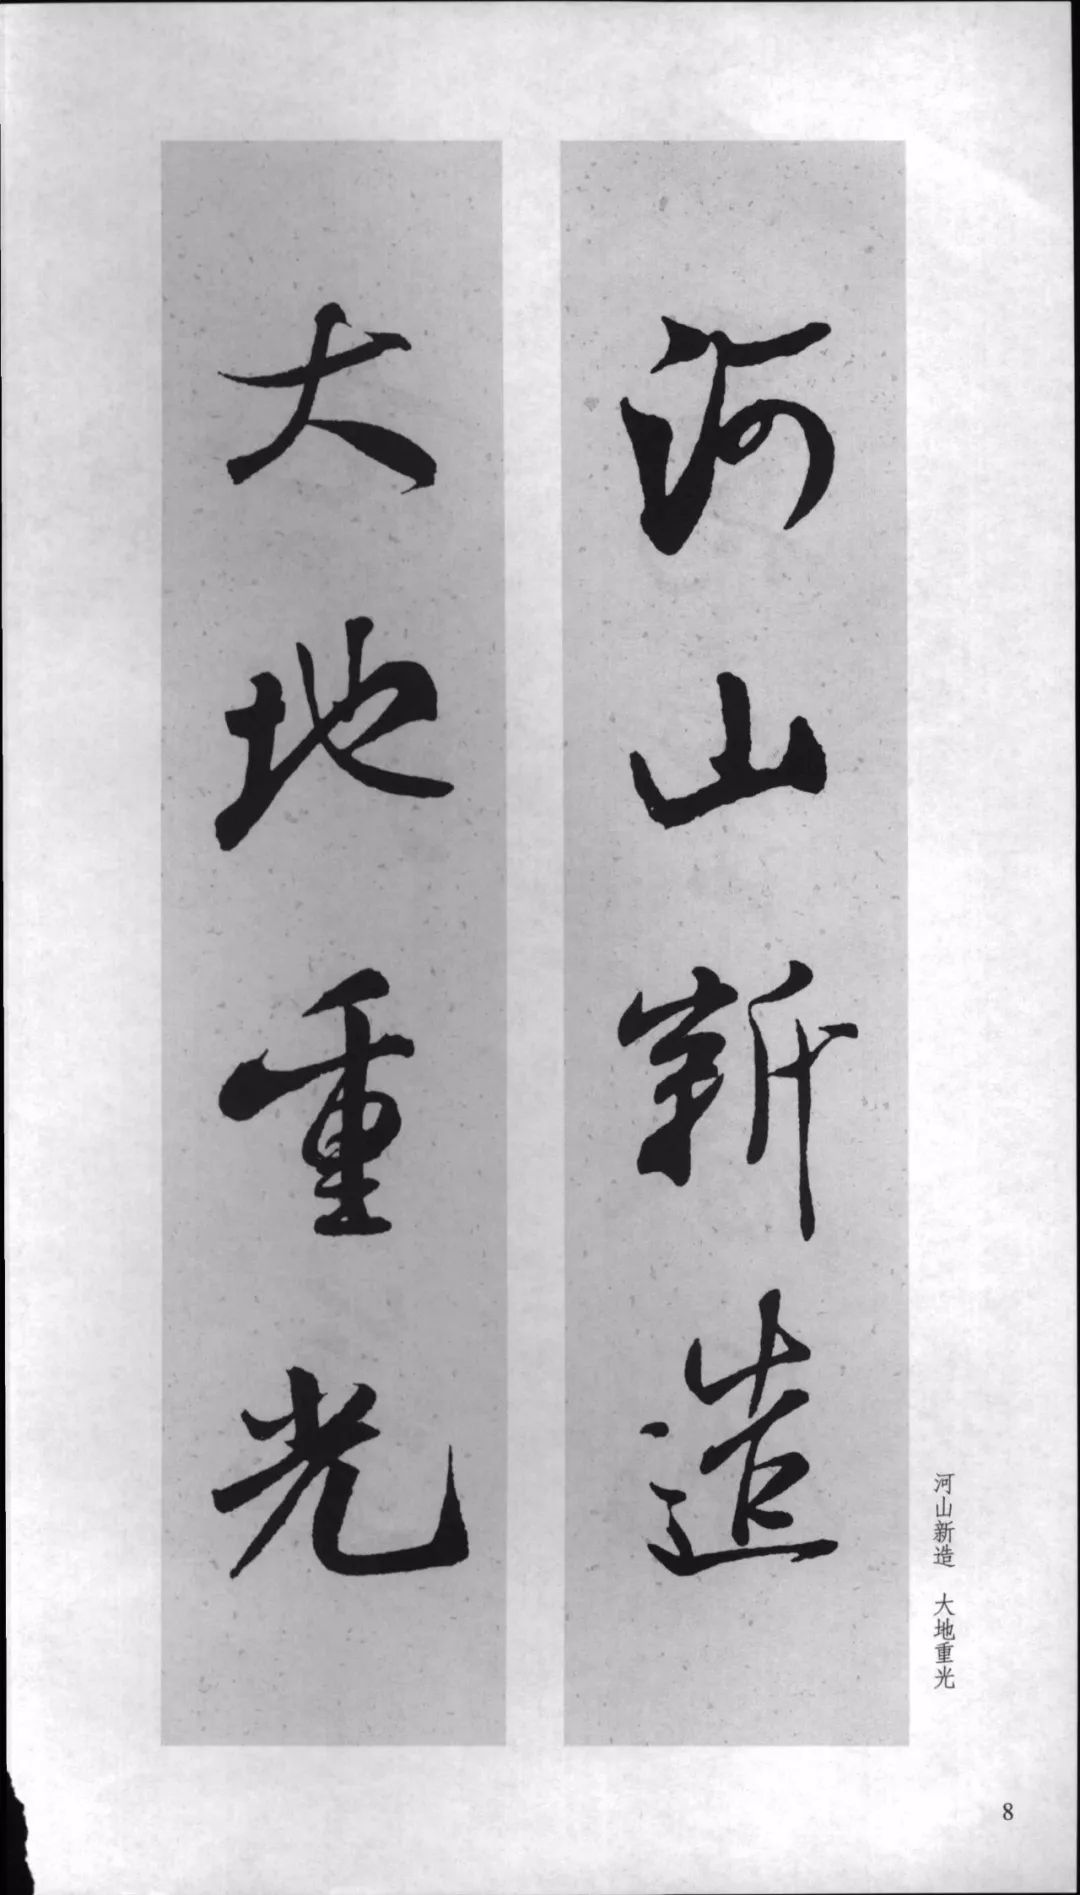 河山新造
大地重光
河山新造 大地重光
8